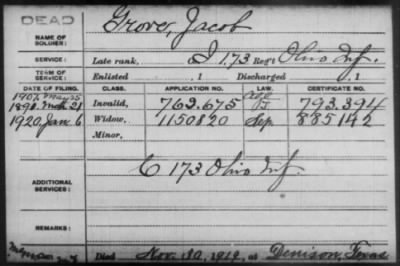 DEAD
NAME OF SOLDIER: Grover, Jacob
SERVICE: Late rank, I 173 Reg't Ohio Inf.
TERM OF SERVICE: Enlisted , 1 Discharged , 1
DATE OF FILING. CLASS. APPLICATION NO. LAW. CERTIFICATE NO.
1907, May 25
189 Mch 21 Invalid, 763.675 Age 793.394
1920, Jan. 6 Widow, 1150820 Sep 885142
Minor,
C 173 Ohio Inf.
ADDITIONAL SERVICES:
REMARKS:
Died Nov. 30, 1919, at Denison, Texas